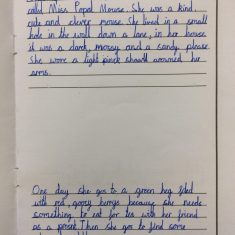 called Miss Popal Mouse. She was a kind,
cute and clever mouse. She lived in a small
hole in the wall down a lane, in her house
it was a dark, mossy and a sandy please
She wore a light pink shawl arownd her
arms.
One day she gos to a green heg filed
with red, goosy berrys because she needs
something to eat for tea with her friend
as a present. Then she got to find some